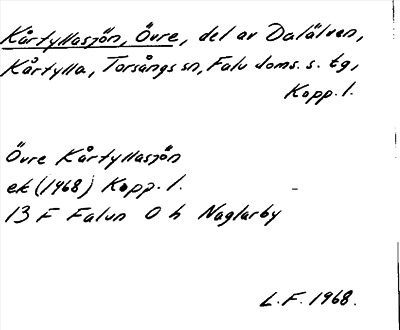 Kårtyllasjön, Övre, del av Dalälven,
Kårtylla, Torsångs sn, Falu doms. s. tg,
Kopp. l.
Övre Kårtyllasjön
ek (1968) Kopp. l.
13 F Falun 0 h Naglarby
L.F. 1968.